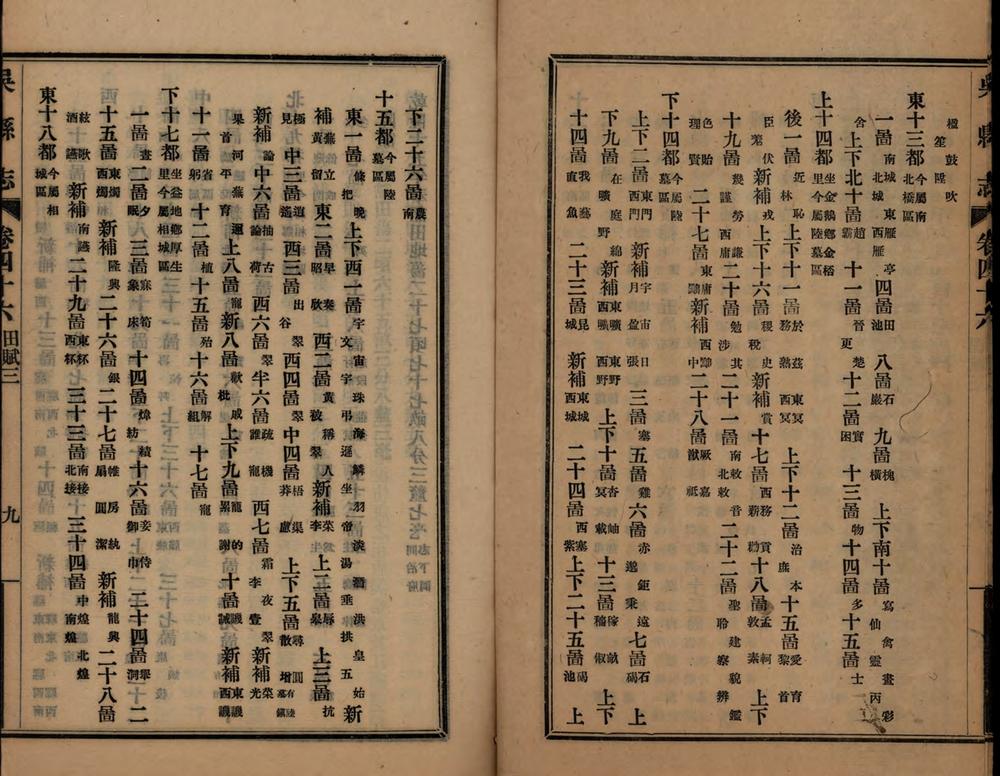 楹鼓吹
笙陞
東十三都今屬南北橋區
一啚南城東雁亭北城西雁 四啚田池 八啚石巖 九啚槐橫 上下南十啚寫仙禽靈畫丙彩
舍 上下北十啚趙霸 十一啚晉更楚 十二啚實困 十三啚物 十四啚多 十五啚士
上十四都坐金鵝鄉金梧里今屬陸墓區
後一啚近林恥 上下十一啚於茲東冥務熟西冥 上下十二啚治本廉 十五啚愛育黎首
臣伏戎 上下十六啚稷稅史 新補賞 十七啚西務貢新 十八啚孟軻敦素 上下
十九啚幾謙謹勞庸 二十啚勉其涉 二十一啚南敕音北敕 二十二啚聆建貌鑑聖察辨
色貽理賢 二十七啚東庸 新補西中 二十八啚厥嘉猷祗
下十四都今屬陸墓區
上下二啚東門西門 新補宇宙日月盈張 三啚塞 五啚雞 六啚赤鉅遠邈秉 七啚石碣 上
下九啚庭綿在曠野 新補東曠東野西曠西野 上下十啚杳岫冥載 十三啚稼畝穡俶 上下
十四啚我藝直魚 二十三啚昆城 新補東城西城 二十四啚西塞紫 上下二十五啚碣池 上
吳縣志
卷四十六
田賦三
九
下二十六啚農南
十五都今屬陸墓區
東一啚條晚把 上下西一啚字宙珠海鱗羽淡潛洪皇始文字弔遜坐帝湯垂拱五 新
補蕪立黃留 東二啚早奏昭欣 西二啚黃稱人被翠 新補菜生李 上二啚辱皋 上三啚抗
極見 中三啚迴遙 西三啚出翠谷 西四啚翠 中四啚梧渠莽處 上下五啚尋圓散
新補論論 中六啚抽荷 西六啚古翠 半六啚疏機誰寵 西七啚霜夜翠李壹 新補菜光
果河蕪運首平育 上八啚寵 新八啚戚歡枇 上下九啚寵的累謝 十啚譏誠 新補東譏西譏
十一啚省躬 十二啚植 十五啚殆 十六啚解組 十七啚寵
下十七都坐益地鄉厚生里今屬相城區
一啚晝 二啚夕眠 三啚寐筍象床 十四啚績煒紡 十六啚妾侍御巾 二十四啚舉洞 二十二
十五啚東燭西燭 新補隆興 二十六啚銀 二十七啚帷房紈扇圓潔 新補龍興 二十八啚
絃歌酒讌 新補南讌 二十九啚東杯西杯 三十三啚南接北接 三十四啚中煌北煌南煌
東十八都今屬相城區